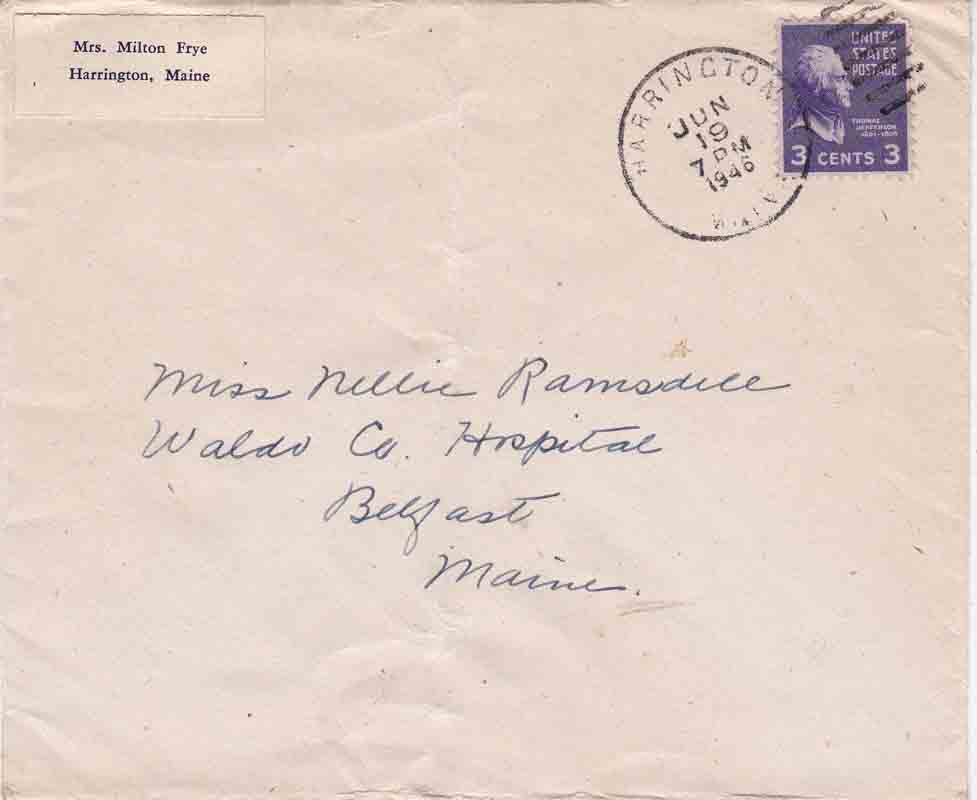 Mrs. Milton Frye
Harrington, Maine
HARRINGTON
JUN
19
7 PM
1946
MAINE
UNITED
STATES
POSTAGE
THOMAS
JEFFERSON
1801-1809
3 CENTS 3
Miss Nellie Ramsdell
Waldo Co. Hospital
Belfast
Maine.